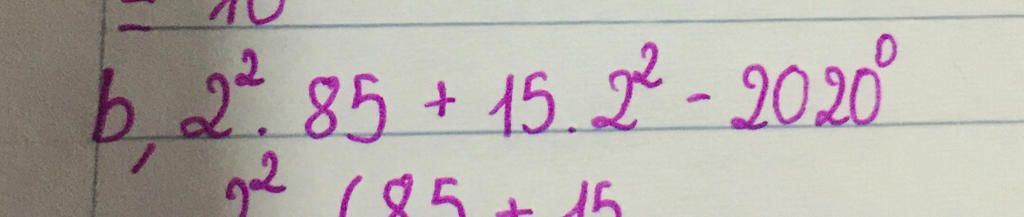 = 10
b, 2². 85 + 15. 2² - 2020⁰
2² (85 + 15